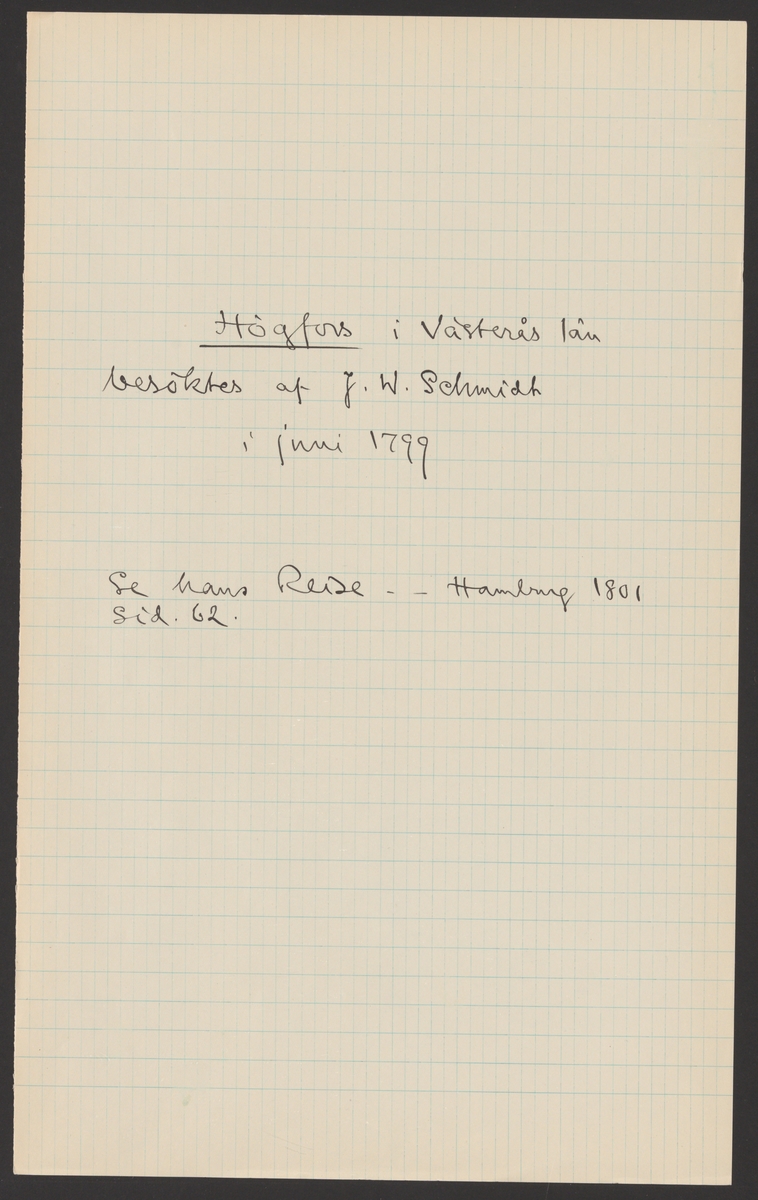 Högfors i Västerås län
besöktes af J. W. Schmidt
i juni 1799
Se hans Reise - - Hamburg 1801
Sid. 62.